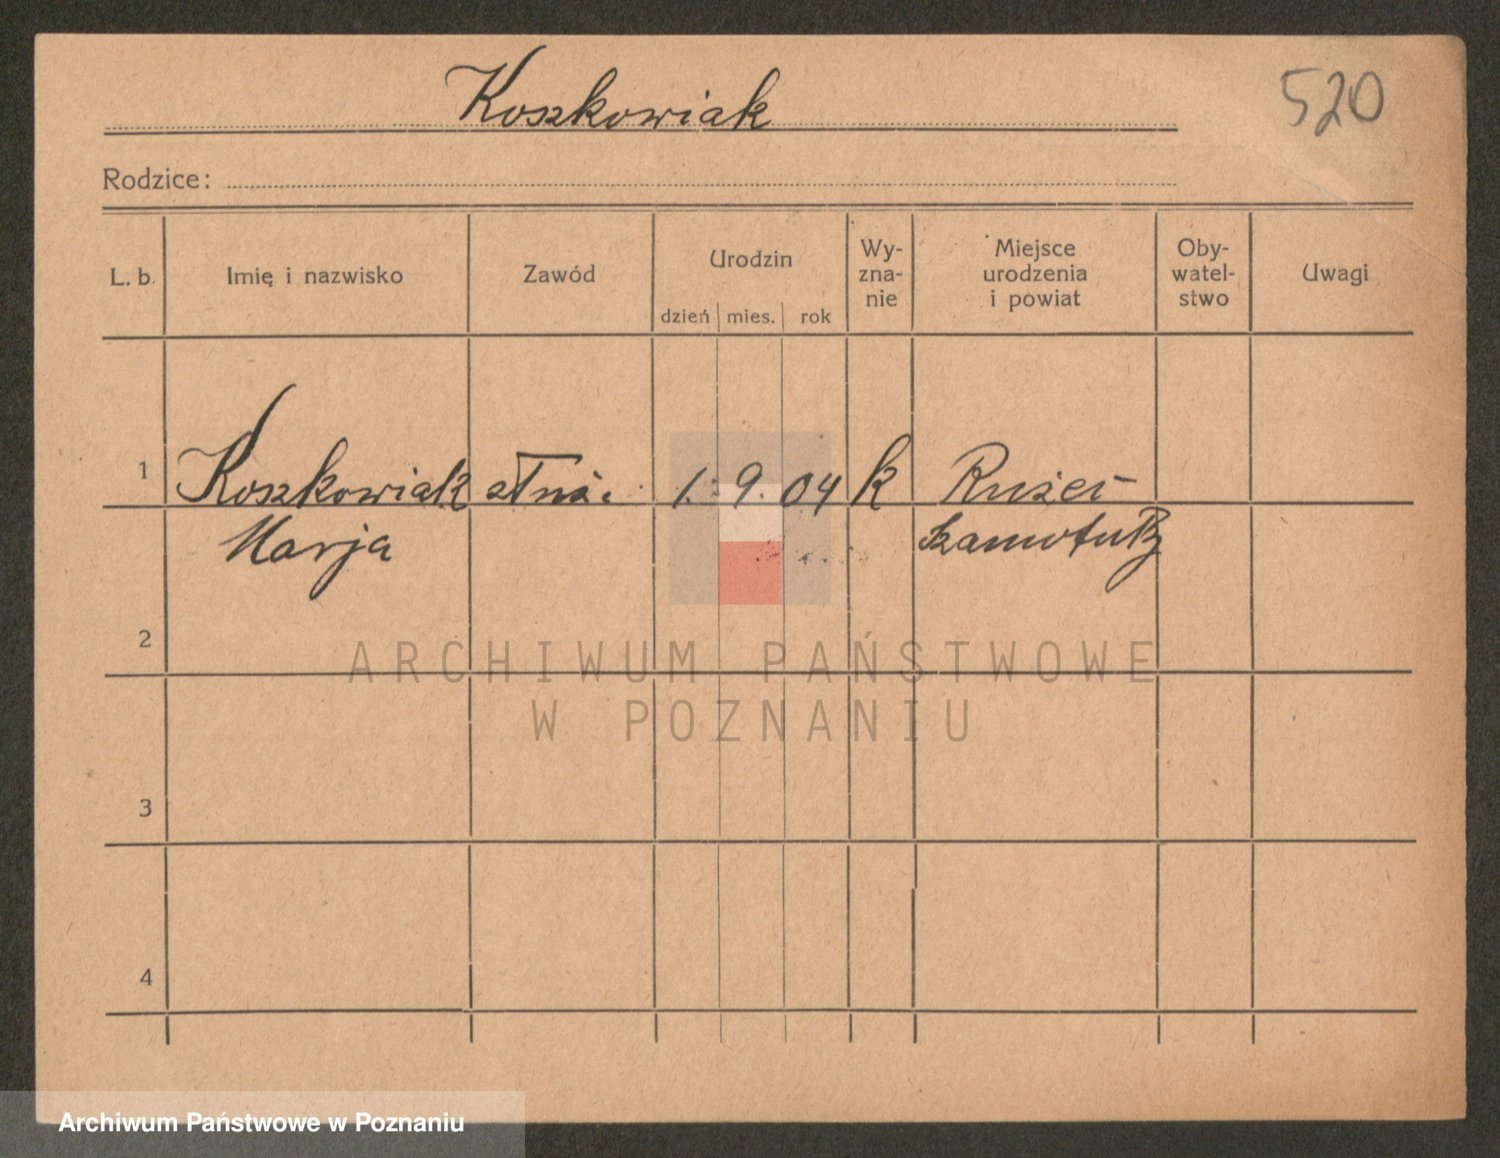 Koszkowiak
520
Rodzice:
L. b.
Imię i nazwisko
Zawód
Urodzin
dzień mies. rok
Wy-
zna-
nie
Miejsce
urodzenia
i powiat
Oby-
watel-
stwo
Uwagi
1 Koszkowiak 1. 9. 04 k
Marja
2
3
4
ARCHIWUM PAŃSTWOWE
W POZNANIU
Archiwum Państwowe w Poznaniu